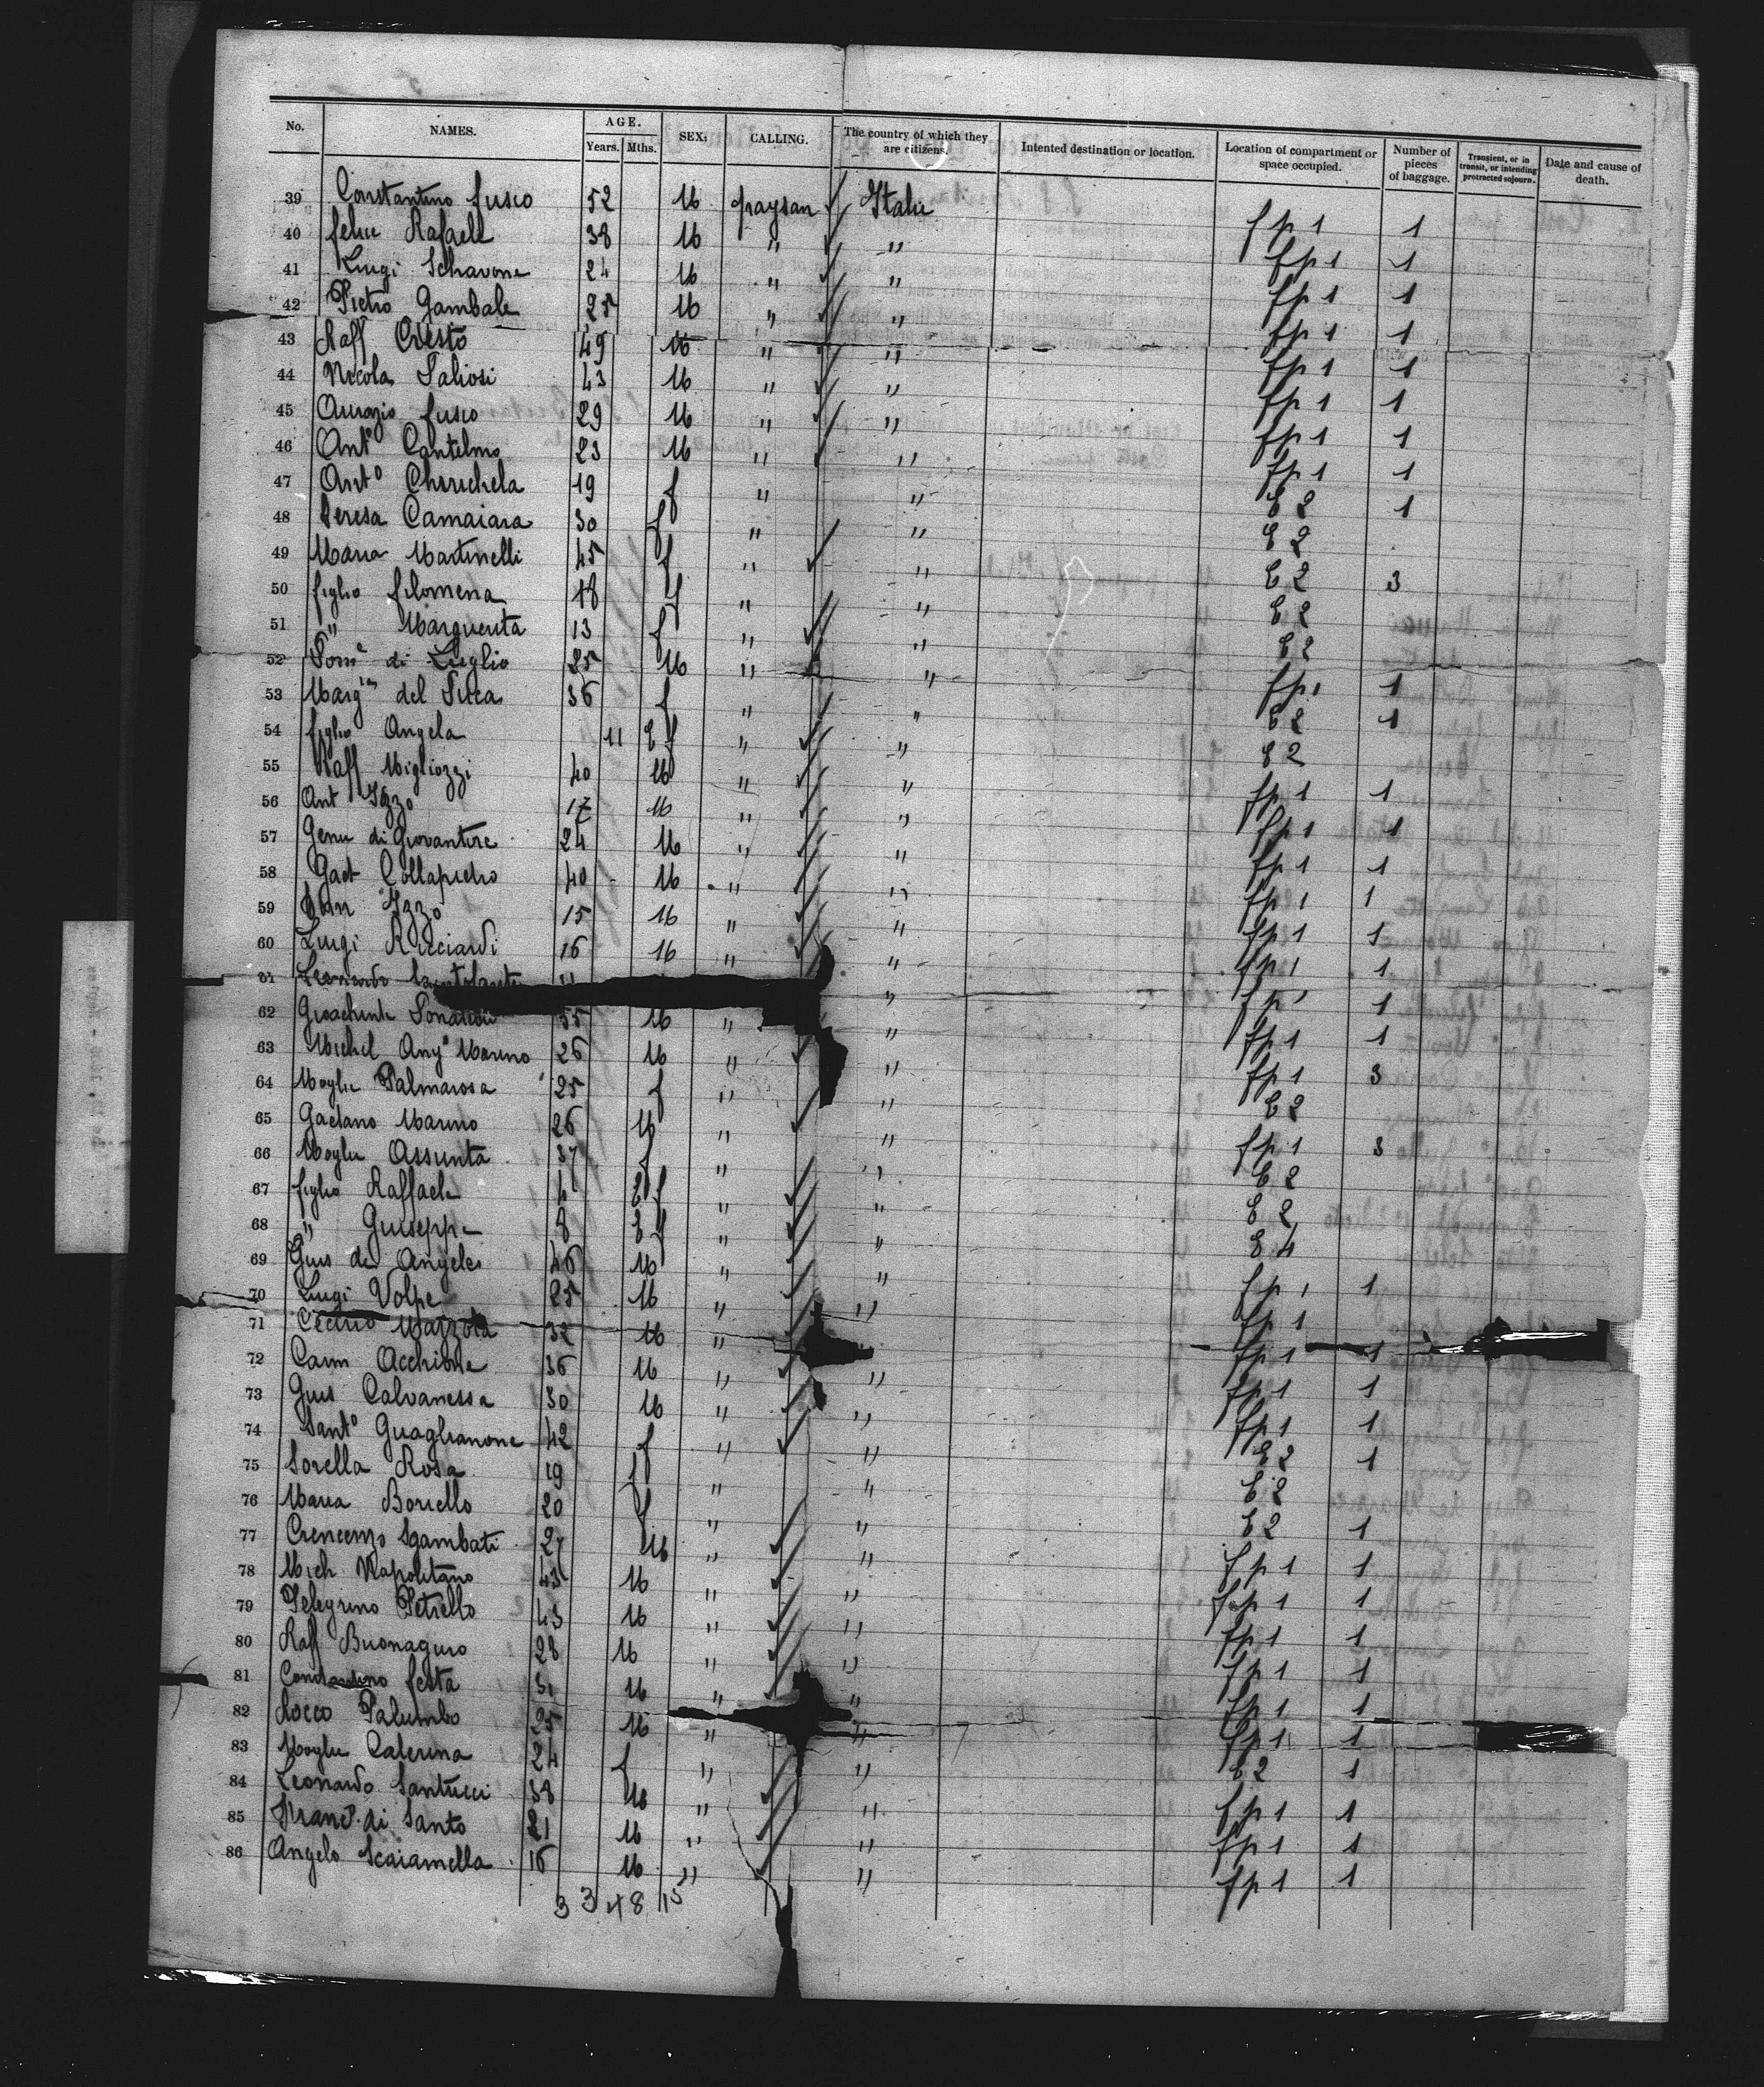 No. NAMES. AGE. Years. Mths. SEX: CALLING. The country of which they are citizens. Intented destination or location. Location of compartment or space occupied. Number of pieces of baggage. Transient, or in transit, or intending protracted sojourn. Date and cause of death.
39 Constantino fusco 52 M paysan Italie fp 1 1
40 felice Rafaele 38 M " " fp 1 1
41 Luigi Schavone 24 M " " fp 1 1
42 Pietro Gambale 25 M " " fp 1 1
43 Raff Cresto 49 M " " fp 1 1
44 Nicola 43 M " " fp 1 1
45 fusco 29 M " " fp 1 1
46 Antº Cantelmo 23 M " " fp 1 1
47 Antº Cherichela 19 f " " E 2 1
48 Teresa Camaiara 30 f " " E 2
49 Maria Martinelli 45 f " " E 2 3
50 figlia filomena 18 f " " E 2
51 " Marguerita 13 f " " E 2
52 di Luglio 25 M " " fp 1 1
53 del 36 f " " E 2 1
54 figlia Angela 11 E f " " E 2
55 Raff Migliozzi 40 M " " fp 1 1
56 Ant Izzo 17 M " " fp 1 1
57 24 M " " fp 1 1
58 Gaet Collapietro 40 M " " fp 1 1
59 Izzo 15 M " " fp 1 1
60 Luigi Ricciardi 16 M " " fp 1 1
61 Leonardo " fp 1 1
62 55 M " " fp 1 1
63 Michel Angº Marino 26 M " " fp 1 3
64 Moglie Palmarosa 25 f " " E 2
65 Gaetano Marino 26 M " " fp 1 3
66 Moglie Assunta 37 f " " E 2
67 figlio Raffaele 4 E f " " E 2
68 " Guiseppe 8 E f " " E 4
69 Guis de Angeles 46 M " " fp 1 1
70 Luigi Volpe 25 M " " fp 1
71 Mazzola 32 M " fp 1 1
72 Carm Acchione 36 M " " fp 1 1
73 Guis Calvanessa 30 M " " fp 1 1
74 Santº Guaglianone 42 f " " E 2 1
75 Sorella Rosa 19 f " " E 2
76 Maria Boriello 20 f " " E 2 1
77 Crencenzo Sgambati 27 M " " fp 1 1
78 Mich Napolitano 43 M " " fp 1 1
79 Pelegrino Petriello 43 M " " fp 1 1
80 Raff Buonaguro 28 M " " fp 1 1
81 festa 31 M " " fp 1 1
82 Rocco Palumbo 25 M " " fp 1 1
83 Moglie Caterina 24 f " " E 2 1
84 Leonardo Santucci 38 M " " fp 1 1
85 di Santo 21 M " " fp 1 1
86 Angelo Scaiamella 16 M " " fp 1 1
3 3 48 15